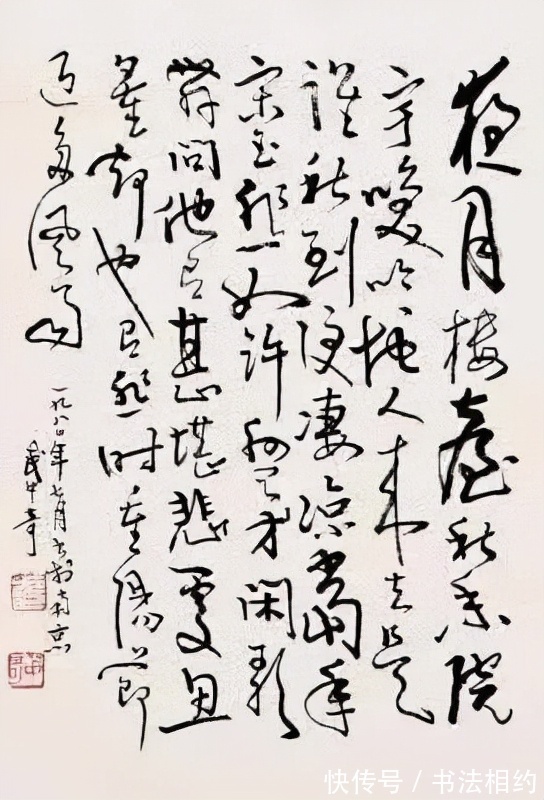 夜月楼台秋香院
宇笑吟吟地人来去是
谁秋到便凄凉当年
宋玉悲如许等闲歌
舞问他有甚堪悲处思
量却也有悲时重阳节
近多风雨
一九八〇年七月书于南京
武中奇
快传号/书法相约